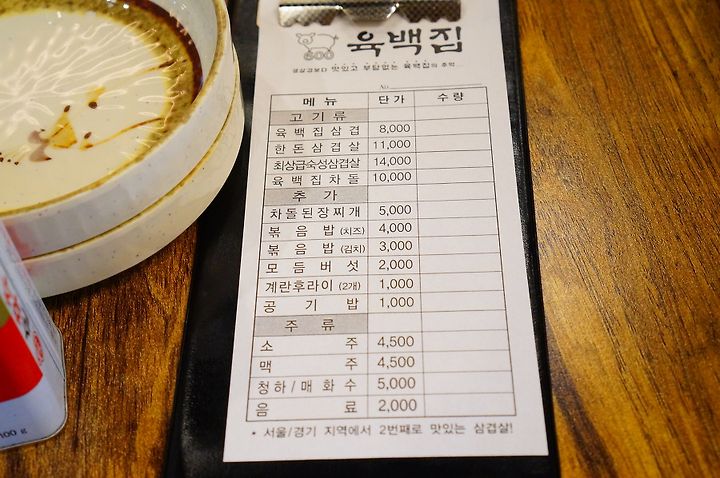 600 육백집
생삼겹보다 맛있고 부담없는 육백집의 추억...
No.
메 뉴 단 가 수 량
고 기 류
육 백 집 삼 겹 8,000
한 돈 삼 겹 살 11,000
최상급숙성삼겹살 14,000
육 백 집 차 돌 10,000
추 가
차돌된장찌개 5,000
볶 음 밥 (치즈) 4,000
볶 음 밥 (김치) 3,000
모 듬 버 섯 2,000
계란후라이 (2개) 1,000
공 기 밥 1,000
주 류
소 주 4,500
맥 주 4,500
청하/매화수 5,000
음 료 2,000
* 서울/경기 지역에서 2번째로 맛있는 삼겹살!
100 g